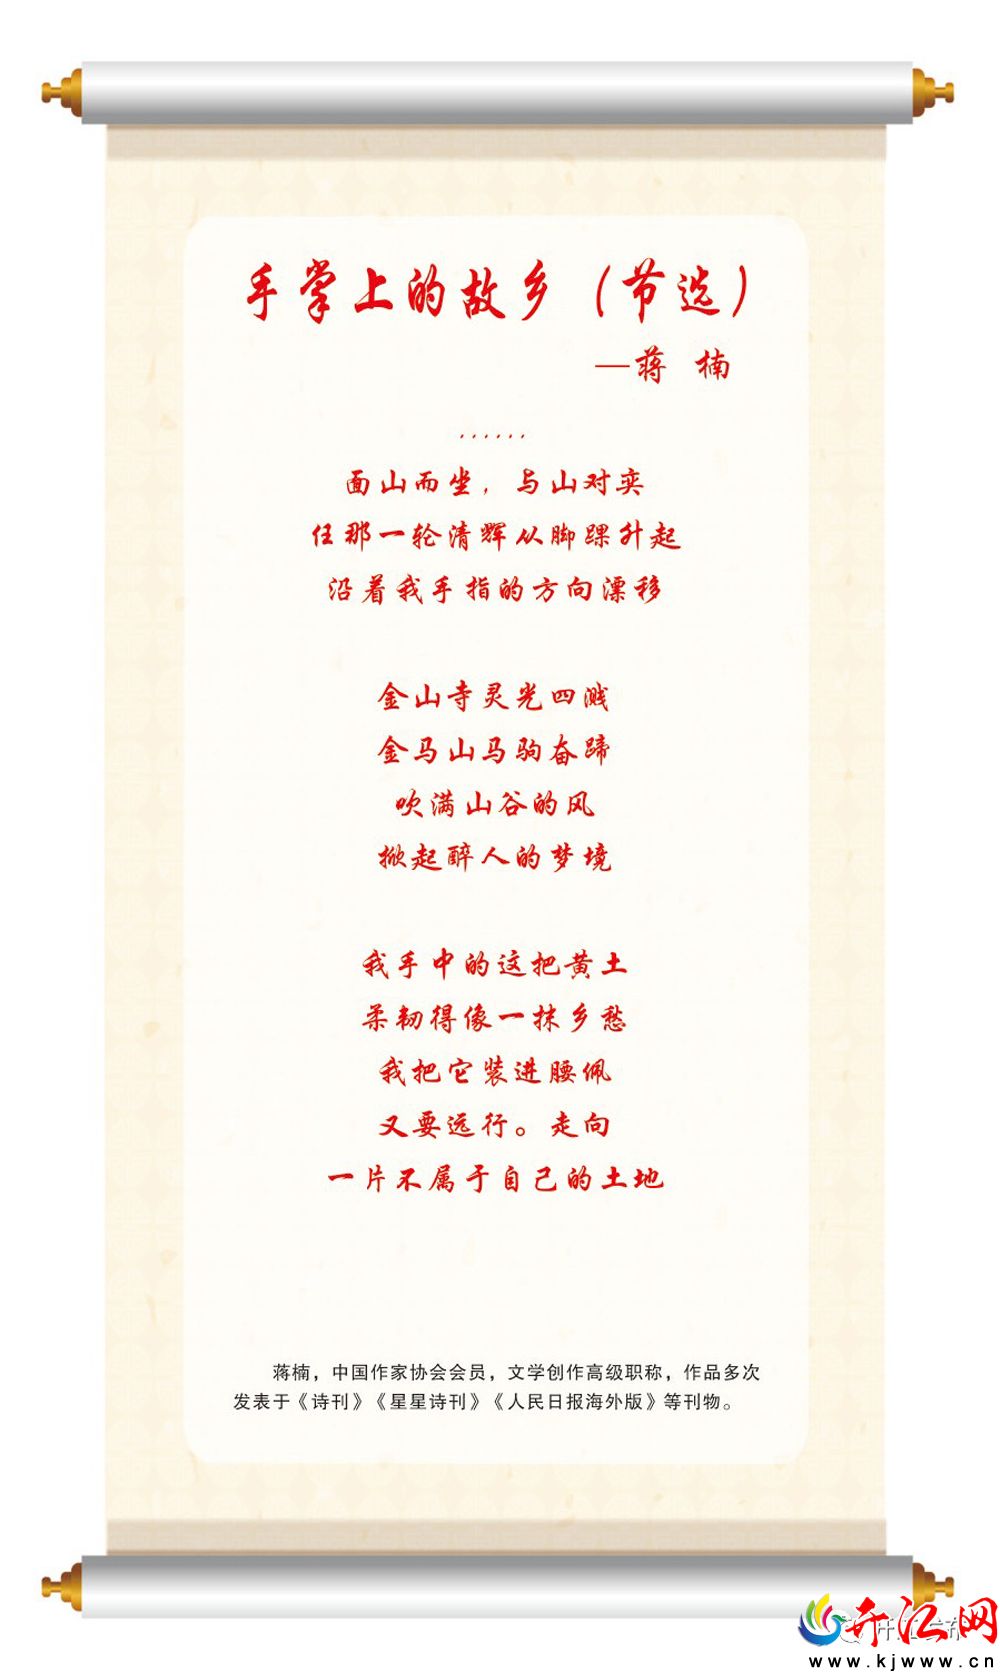 手掌上的故乡（节选）
—蒋 楠
......
面山而坐，与山对奕
任那一轮清辉从脚踝升起
沿着我手指的方向漂移
金山寺灵光四溅
金马山马驹奋蹄
吹满山谷的风
掀起醉人的梦境
我手中的这把黄土
柔韧得像一抹乡愁
我把它装进腰佩
又要远行。走向
一片不属于自己的土地
蒋楠，中国作家协会会员，文学创作高级职称，作品多次
发表于《诗刊》《星星诗刊》《人民日报海外版》等刊物。
开江网
www.kjwww.cn